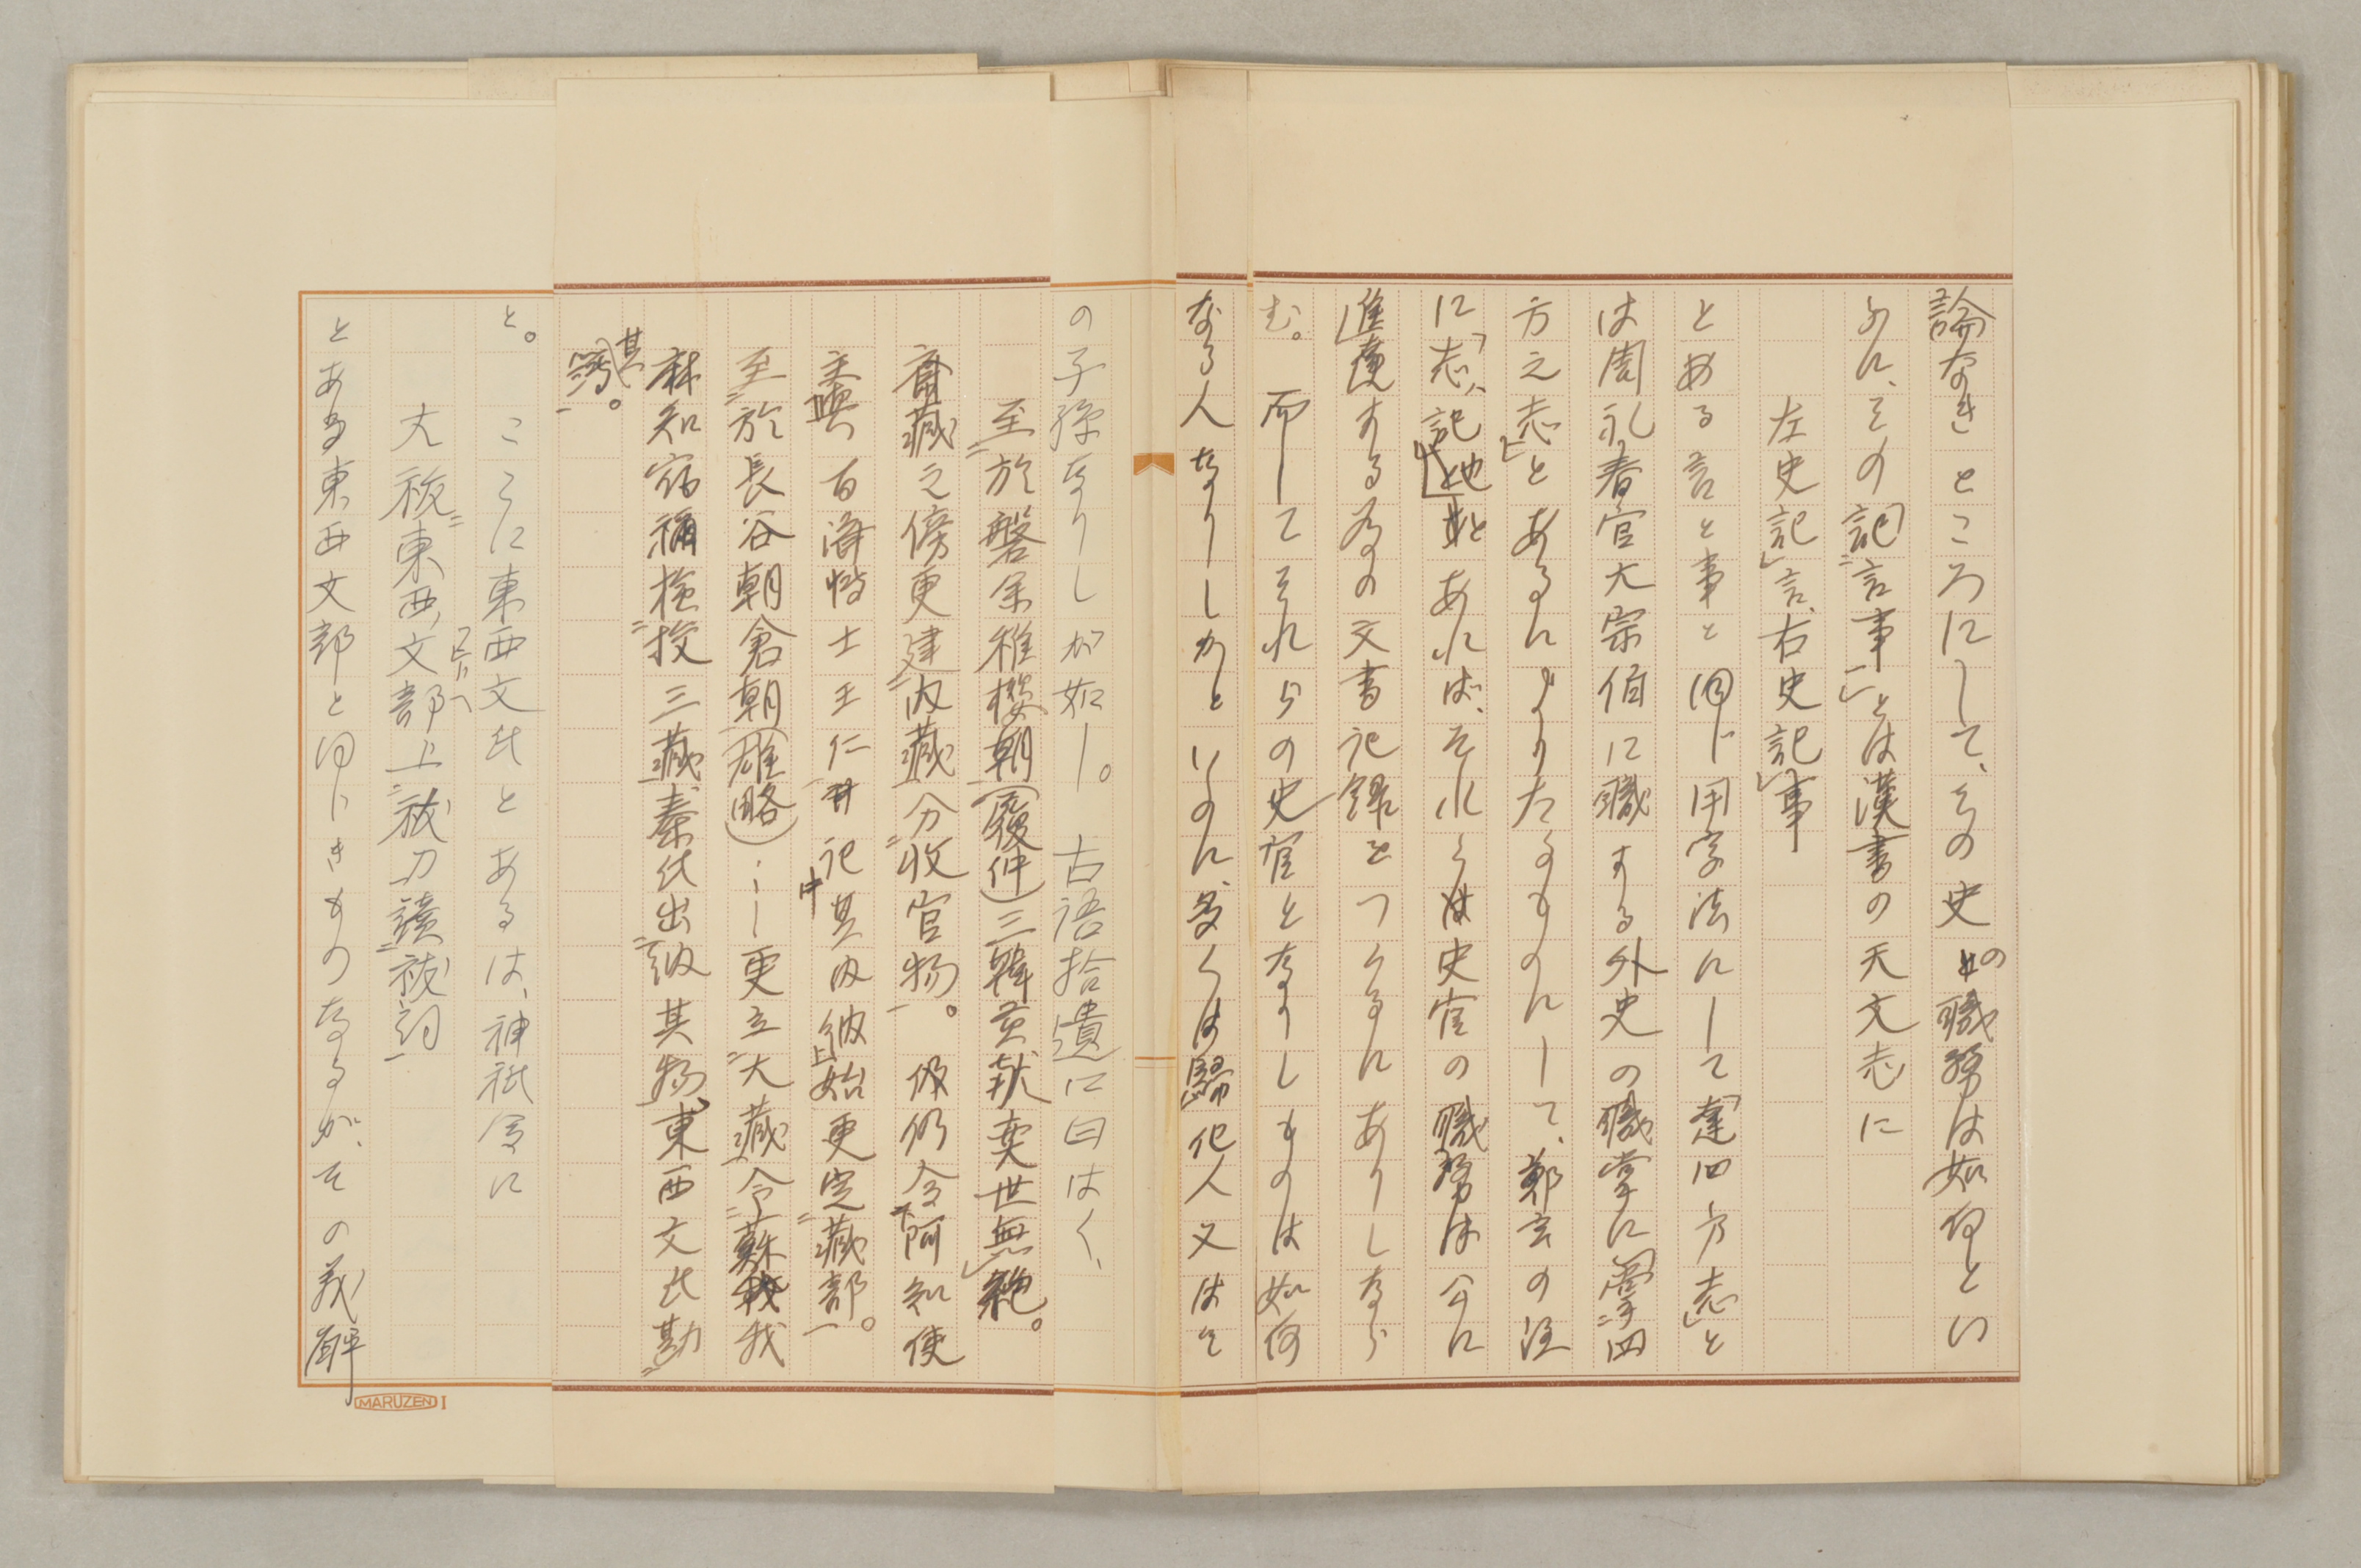 論なきところにして、その史の職務は如何とい
ふに、その「記言事」とは漢書の天文志に
左史記言、右史記事
とある言と事と同じ用字法にして「達四方志」と
は周礼春官大宗伯に職する外史の職掌に「掌四
方之志」とあるによりたるものにして、鄭玄の注
に「志、記也」とあれば、それらは史官の職務は今に
進達する為の文書記録をつくるにありしなら
む。而してそれらの史官となりしものは如何
なる人なりしかといふに、多くは歸化人又はそ
の子孫なりしが如し。古語拾遺に曰はく、
至於磐余稚櫻朝(履仲)三韓貢献奕世無絶。
齋藏之傍更建内藏分收官物。仍令阿知使
主與百濟博士王仁記其出納始更定藏部。
至於長谷朝倉朝(雄略)……更立大藏令蘇我
麻知宿禰検挍三藏秦氏出納其物東西文氏勘
其簿。
と。ここに東西文氏とあるは、神祇令に
大祓東西文部上祓刀讀祓詞
とある東西文部と同じきものなるが、その義解
MARUZEN I